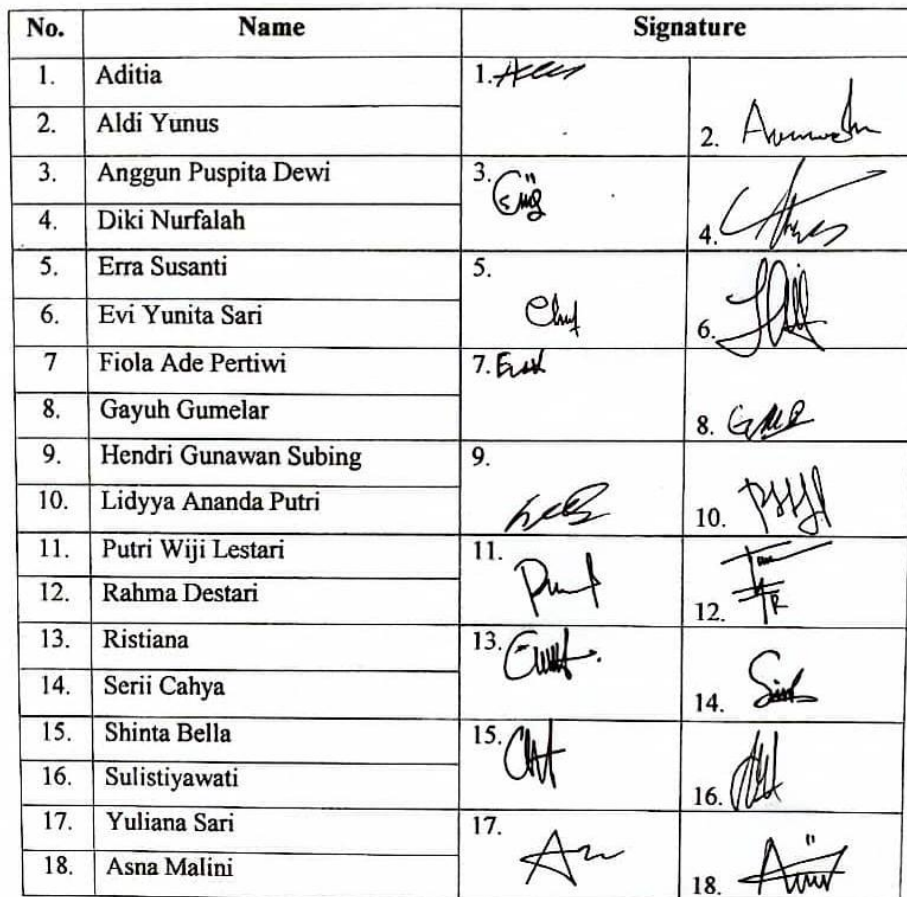 No. Name Signature
1. Aditia 1.
2. Aldi Yunus 2.
3. Anggun Puspita Dewi 3.
4. Diki Nurfalah 4.
5. Erra Susanti 5.
6. Evi Yunita Sari 6.
7 Fiola Ade Pertiwi 7.
8. Gayuh Gumelar 8.
9. Hendri Gunawan Subing 9.
10. Lidyya Ananda Putri 10.
11. Putri Wiji Lestari 11.
12. Rahma Destari 12.
13. Ristiana 13.
14. Serii Cahya 14.
15. Shinta Bella 15.
16. Sulistiyawati 16.
17. Yuliana Sari 17.
18. Asna Malini 18.